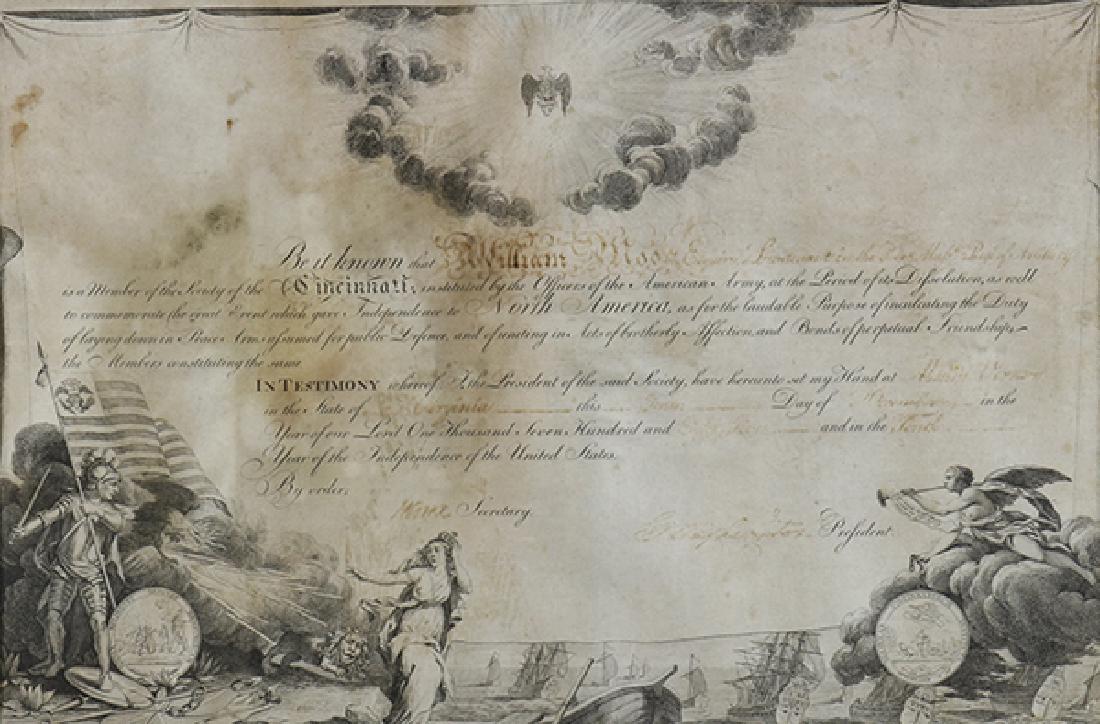 Be it known that William Moor Esquire, Lieutenant in the
is a Member of the Society of the Cincinnati; instituted by the Officers of the American Army, at the Period of its Dissolution, as well
to commemorate the great Event which gave Independence to North America, as for the laudable Purpose of inculcating the Duty
of laying down in Peace Arms assumed for public Defence, and of uniting in Acts of brotherly Affection, and Bonds of perpetual Friendship,
the Members constituting the same
IN TESTIMONY whereof I, the President of the said Society, have hereunto set my Hand at Mount Vernon
in the State of Virginia this Day of in the
Year of our Lord One Thousand Seven Hundred and and in the Tenth
Year of the Independence of the United States.
By order,
Knox Secretary.
G Washington President.